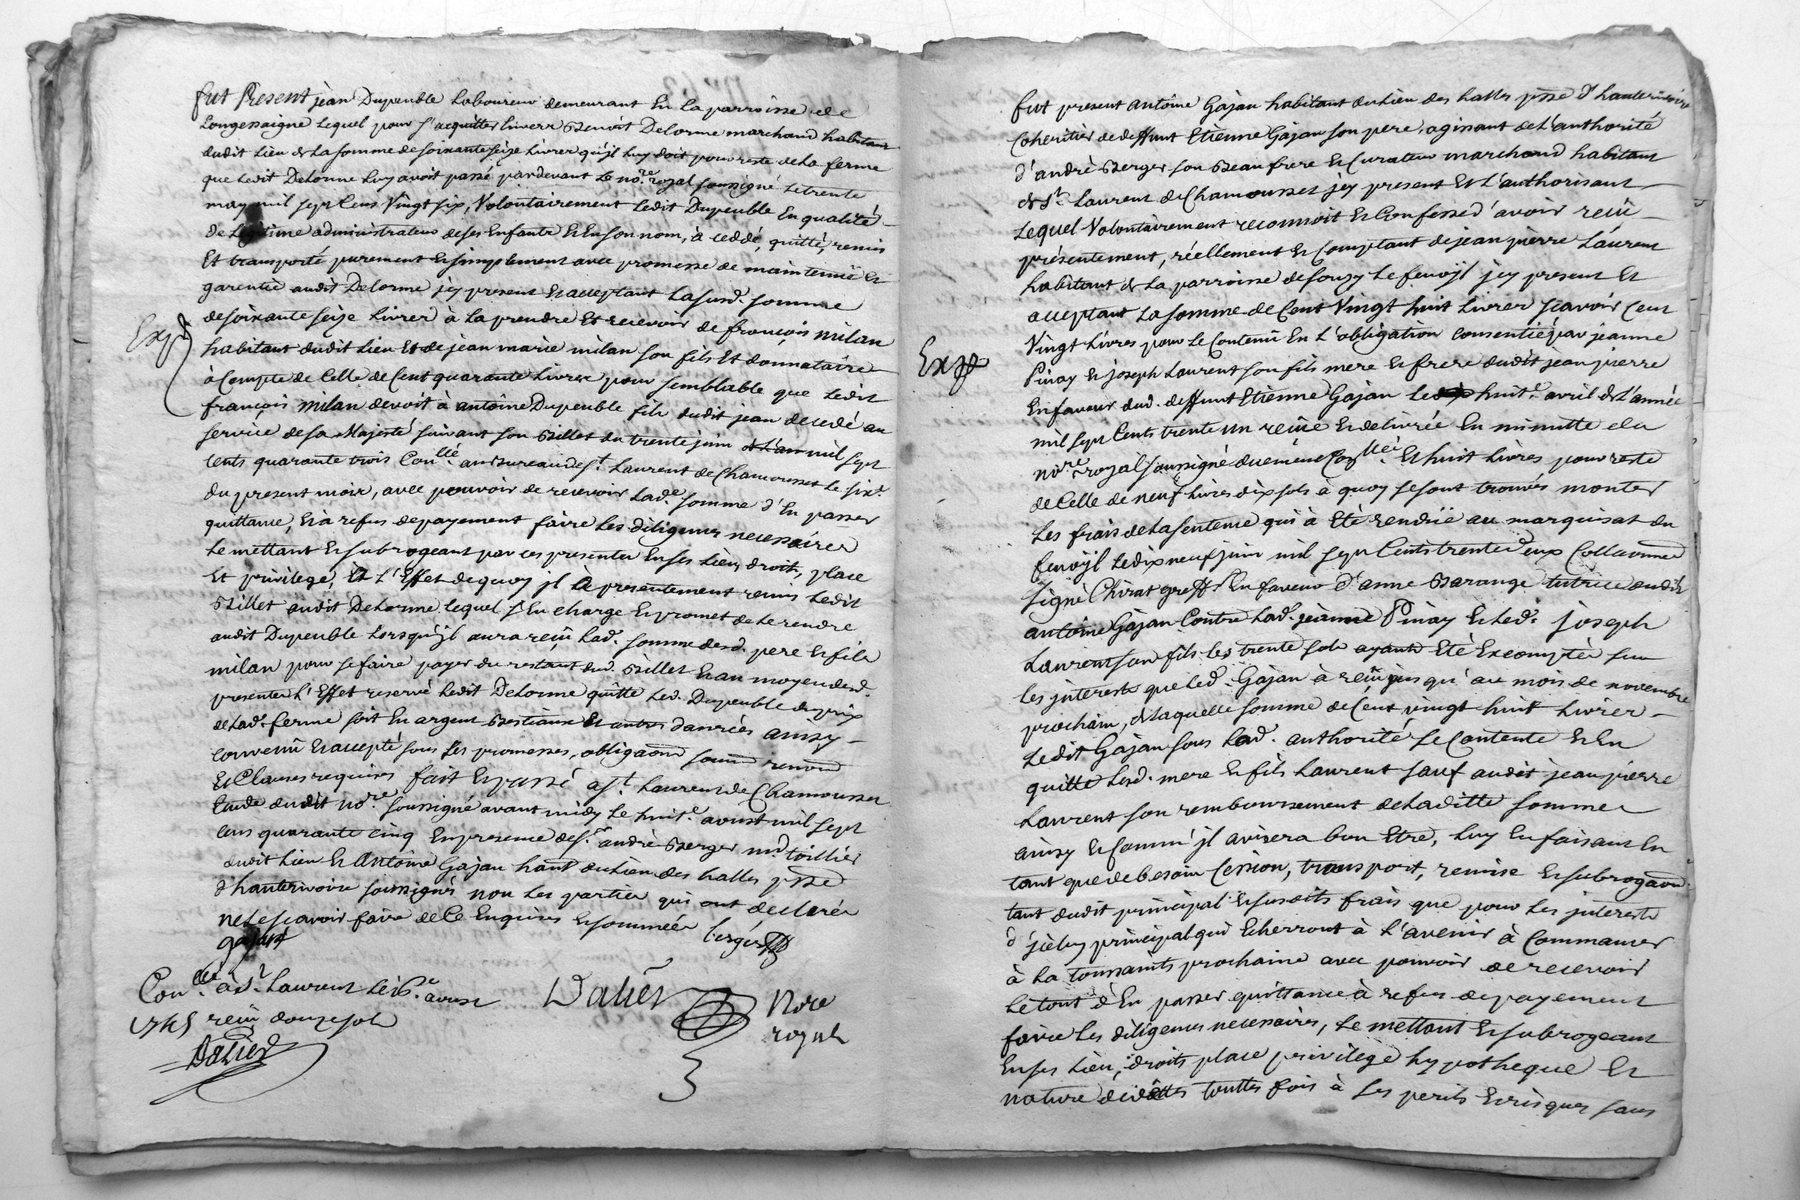 fut Present jean Dupeuble Laboureur demeurant En la parroisse de
Longessaigne Lequel pour s'acquitter Envers Benoist Delorme marchand habitant
dudit Lieu de La somme de soixante seize Livres qu'jl Luy doit pour reste de la ferme
que Ledit Delorme Luy avoit passé pardevant Le no.re royal soussigné Le trente
may mil sept Cens Vingt six, Volontairement Ledit Dupeuble En qualité
de Legitime administrateur de ses Enfants Et En son nom, à ceddé, quitté, remis
Et transporté purement Et simplement avec promesse de maintenüe Et
garentie audit Delorme jcy present Et acceptant La susd. somme
de soixante seize Livres à La prendre Et recevoir de françois milan
habitant dudit Lieu Et de jean marie milan son fils Et donnataire
à Compte de Celle de Cent quarante Livres pour semblable que Ledit
françois Milan devoit à antoine Dupeuble fils dudit jean decedé au
service de sa Majesté suivant son Billet du trente juin mil sept
cents quarante trois Con.lle au Bureau de S.t Laurent de Chamousset Le six.e
du present mois, avec pouvoir de recevoir Lad.e somme d'En passer
quittance, Et à refus de payement faire Les diligences necessaires
Le mettant Et subrogeant par ces presentes En ses Lieu, droits, place
Et privilege, à L'Effet de quoy jl à presentement remis Ledit
Billet audit Delorme Lequel s'En charge Et promet de Le rendre
audit Dupeuble Lorsqu'jl aura reçü Lad. somme desd. pere Et fils
milan pour se faire payer du restant dud. Billet Et au moyen desd.
presentes L'Effet reservé Ledit Delorme quitte Led. Dupeuble du prix
de Lad. ferme soit En argent Bestiaux Et autres danrées ainsy
convenü Et accepté sous Les promesses, obligaõns soum renõn
Et Clauses requises fait Et passé à S.t Laurent de Chamousset
Etude dudit no.re soussigné avant midy Le huit.e aoust mil sept
cens quarante cinq En presence de S.r andré Berger m.d toillier
dudit Lieu Et Antoine Gajan hant du Lieu des halles psse
d'hauterivoire soussignés non Les parties qui ont declarées
ne Le sçavoir faire de Ce Enquises Et sommées Berger
gajant
Con.lle à S.t Laurent Le 16.e aoust
1745 reçü douze sols
Dalier
Dalier Nore
royal
Exp.d
fut present antoine Gajan habitant du Lieu des halles psse d'hauterivoire
Coheritier de deffunt Etienne Gajan son pere, agissant de L'authorité
d'andré Berger son Beau frere Et Curateur marchand habitant
de S.t Laurent de Chamousset jcy present Et L'authorisant
Lequel Volontairement reconnoit Et Confesse d'avoir reçü
présentement, réellement Et Comptant de jean pierre Laurent
habitant de La parroisse de souzy Le fenoÿl jcy present Et
acceptant La somme de Cent Vingt huit Livres sçavoir Cent
Vingt Livres pour Le Contenü En L'obligation consentie par jeanne
Pinay Et joseph Laurent son fils mere Et frere dudit jean pierre
En faveur dud. deffunt Etienne Gajan Le huit.e avril de L'année
mil sept Cents trente un reçüe Et delivrée En minutte du
no.re royal soussigné duement Con.llée Et huit Livres pour reste
de Celle de neuf Livres dix sols à quoy se sont trouvés monter
Les frais de La sentence qui à Eté rendüe au marquisat du
fenoÿl Le dix neuf juin mil sept Cents trente deux Collationné
signé Chirat greff.r En faveur d'anne Barange tutrice dudit
antoine Gajan Contre Lad. jeanne Pinay Et Led. joseph
Laurent son fils Les trente sols ayants Eté Excomptés sur
Les jnterests que Led. Gajan à reçü jusqu'au mois de novembre
prochain, de Laquelle somme de Cent vingt huit Livres
Ledit Gajan sous Lad. authorité se Contente Et En
quitte Lesd. mere Et fils Laurent sauf audit jean pierre
Laurent son remboursement de La ditte somme
ainsy Et Comm' jl avisera bon Etre, Luy En faisant En
tant que de besoin Cession, transport, remise Et subrogaõn
tant dudit principal Et susdits frais que pour Les jnterests
d'jceluy principal qui Echerront à L'avenir à Commancer
à La toussaints prochaine avec pouvoir de recevoir
Le tout d'En passer quittance à refus de payement
faire Les diligences necessaires, Le mettant Et subrogeant
En ses Lieu, droits place privilege hypotheque Et
nature de dettes touttes fois à ses perils Et risques sans
Exp.